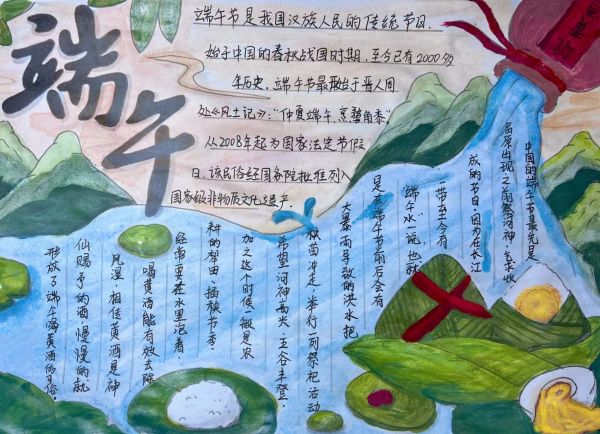 端午
端午节是我国汉族人民的传统节日.
始于中国的春秋战国时期,至今已有2000多
年历史,端午节最早始于晋人周
处《风土记》:"仲夏端午,烹鹜角黍"
从2008年起为国家法定节假
日.该民俗经国务院批准列入
国家级非物质文化遗产.
中国的端午节最先是
屈原出现之前祭河神,乞求收
成的节日.因为在长江
一带至今有
"端午水"一说,也就
是在端午节前后会有
大暴雨导致的洪水把
秧苗冲走,举行一列祭祀活动
希望河神高兴、五谷丰登.
加之这个时候一般是农
耕的犁田、插秧节季.
经常要在水里泡着.
喝黄酒能有效去除
风湿,相传黄酒是神
仙赐予的酒,慢慢的就
形成了端午喝黄酒的习俗.